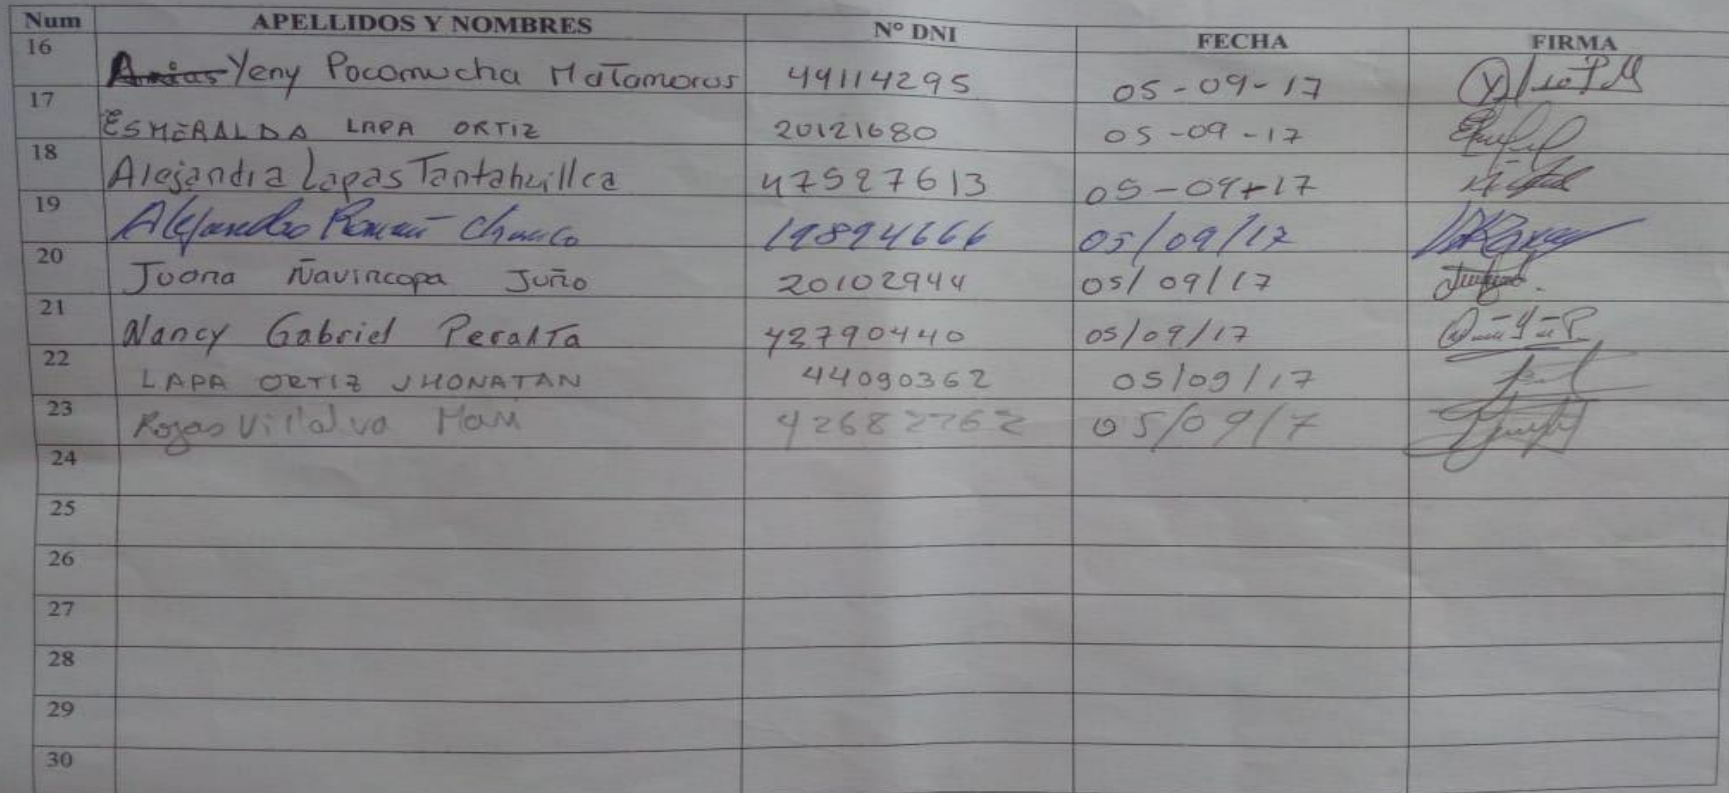 Num APELLIDOS Y NOMBRES N° DNI FECHA FIRMA
16 Arias Yeny Pocomucha Matamoros 49114295 05-09-17
17 ESMERALDA LAPA ORTIZ 20121680 05-09-17
18 Alejandra Lapas Tantahuillca 47527613 05-09-17
19 Alejandro 19894666 05/09/17
20 Juana Ñavincopa Juño 20102944 05/09/17
21 Nancy Gabriel Peralta 43790440 05/09/17
22 LAPA ORTIZ JHONATAN 44090362 05/09/17
23 Rojas Villalva 42682762 05/09/7
24
25
26
27
28
29
30